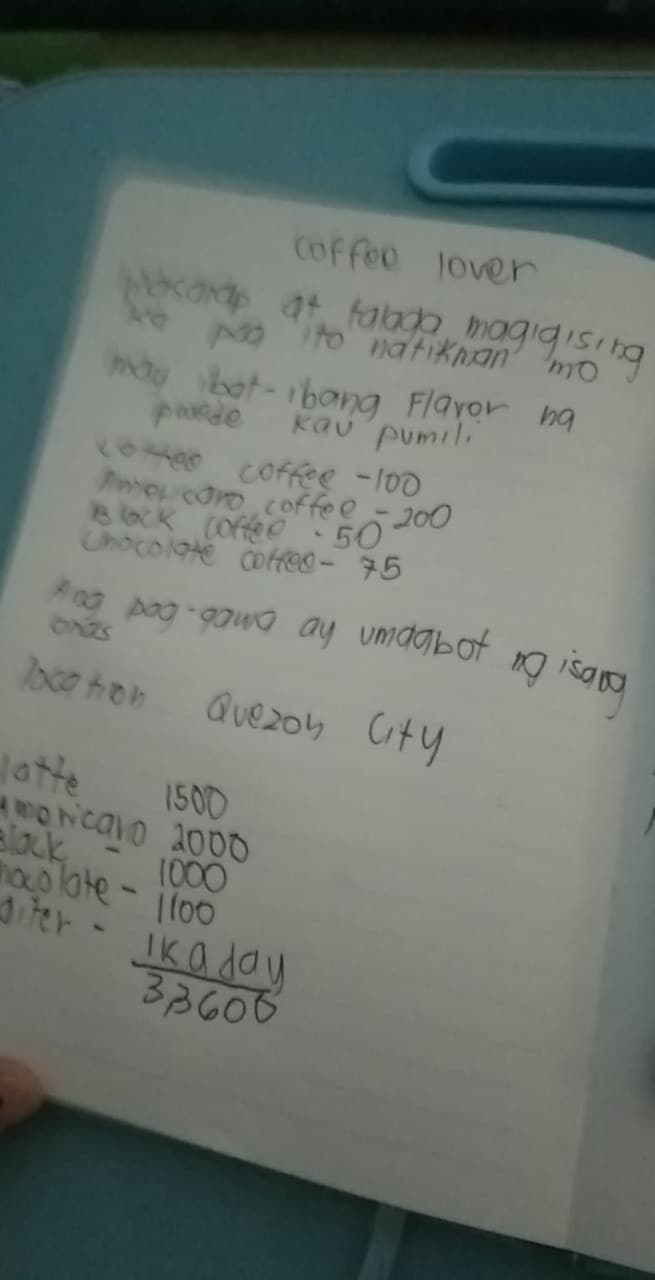 coffee lover
masarap at talaga magigising
ka pag ito natikman mo
may ibat-ibang Flavor na
pwede kau pumili
coffee -100
Americano coffee - 200
Black coffee - 50
Chocolate coffee - 75
Ang pag-gawa ay umaabot ng isang
oras
location Quezon City
latte 1500
Americano 2000
Black - 1000
hocolate - 1100
aiter - 1k a day
33600